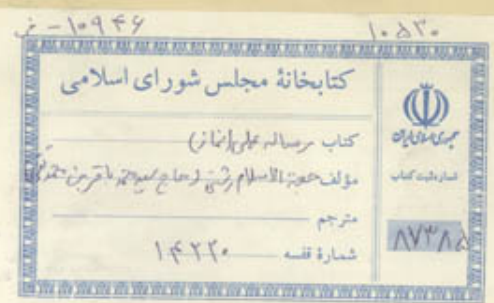 ۱۰۹۴۶ - ف
۱۰۵۳۰
کتابخانهٔ مجلس شورای اسلامی
کتاب رساله عملی (نماز)
مؤلف حجة الاسلام رشتی (حاج سید محمد باقر بن محمد نقی
مترجم
شمارهٔ قفسه ۱۴۲۲۰
جمهوری اسلامی ایران
شماره ثبت کتاب
۸۷۳۸۵